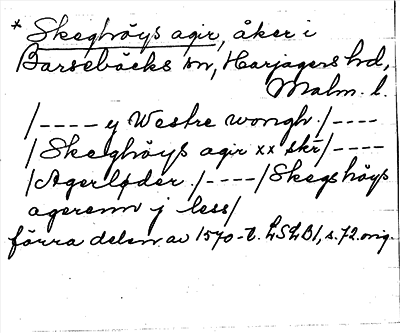 * Skeghöys agir, åker i
Barsebäcks sn, Harjagers hd,
Malm. l.
/---- ej Westre wongh./----
/Skeghöys agir xx skr/----
/Agerløder./----/Skegshöys
agerenn j less/
förra delen av 1570-t. LSLB1, s. 72. orig.